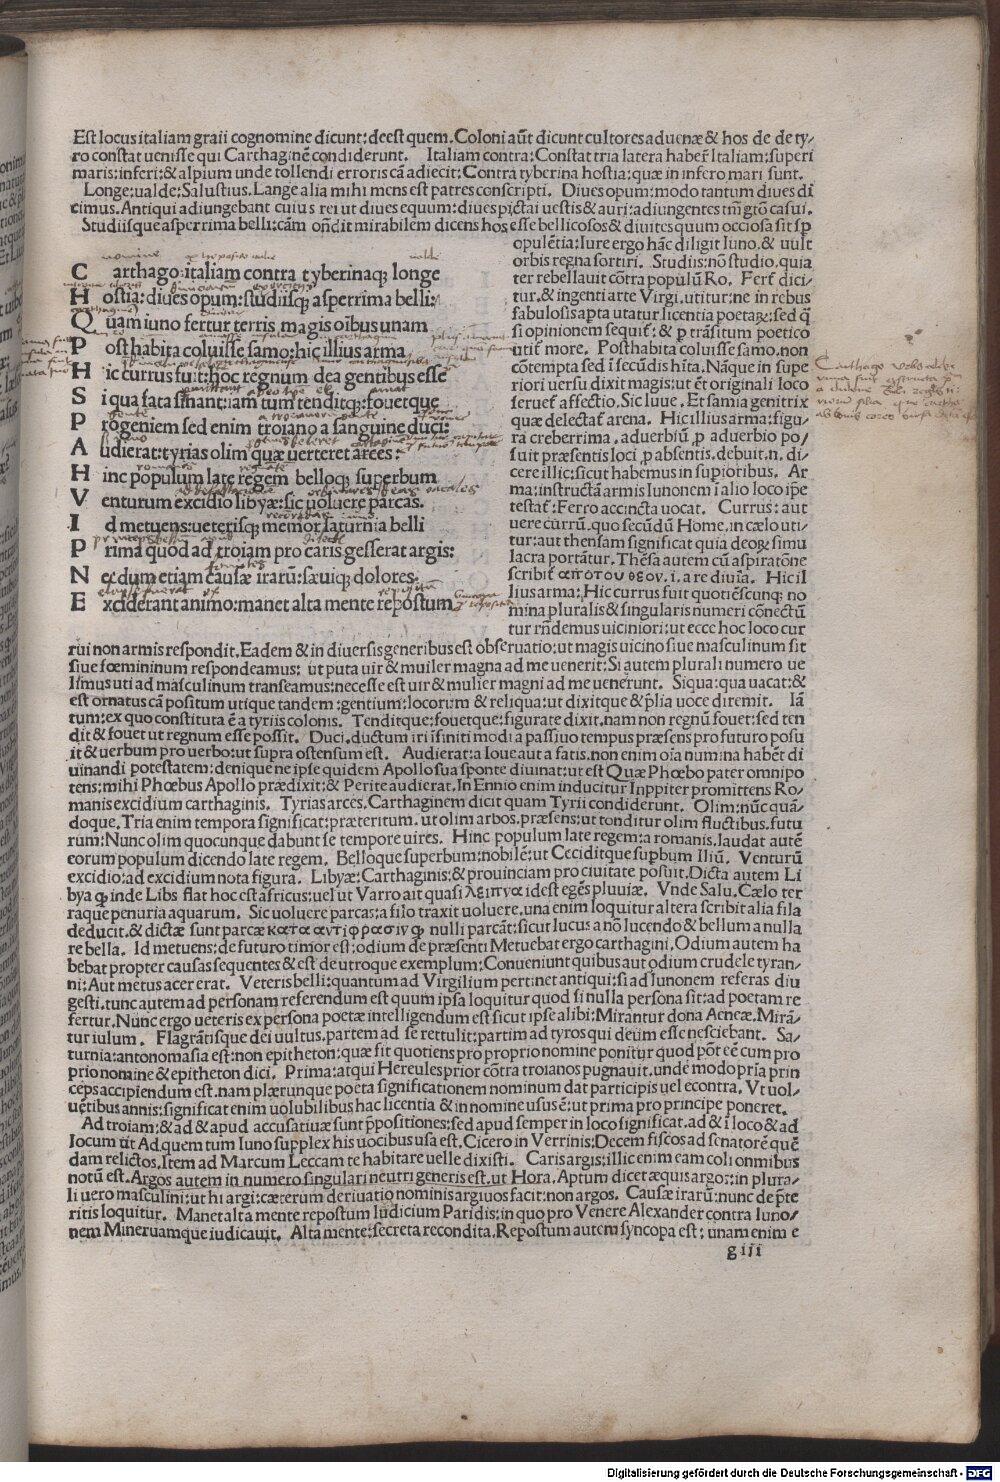 Est locus italiam graii cognomine dicunt: deest quem. Coloni aũt dicunt cultores aduenæ & hos de de ty/
ro constat uenisse qui Carthaginẽ condiderunt. Italiam contra: Constat tria latera haber̃ Italiam: superi
maris: inferi: & alpium unde tollendi erroris cã adiecit: Contra tyberina hostia: quæ in infero mari sunt.
Longe: ualde: Salustius. Lange alia mihi mens est patres conscripti. Diues opum: modo tantum diues di
cimus. Antiqui adiungebant cuius rei ut diues equum: diues pictai uestis & auri: adiungentes tm̃ gtõ casui.
Studiisque asperrima belli: cãm oñdit mirabilem dicens hos esse bellicosos & diuites quum occiosa sit sꝑ
C arthago: italiam contra tyberinaqꝫ longe
H ostia: diues opum: studiisqꝫ asperrima belli:
Q uam iuno fertur terris magis oĩbus unam
P osthabita coluisse samo: hic illius arma
H ic currus fuit: hoc regnum dea gentibus esse
S i qua fata sinant: iam tum tenditqꝫ: fouetque
P rogeniem sed enim troiano a sanguine duci:
A udierat: tyrias olim quæ uerteret arces:
H inc populum late regem belloqꝫ superbum
V enturum excidio libyæ: sic uoluere parcas.
I d metuens: ueterisqꝫ memor saturnia belli
P rima quod ad troiam pro caris gesserat argis:
N ecdum etiam causæ irarũ: sæuiqꝫ dolores.
E xciderant animo: manet alta mente repostum
opulẽtia: Iure ergo hãc diligit Iuno. & uult
orbis regna sortiri. Studiis: nõ studio. quia
ter rebellauit cõtra populũ Ro. Fert̃ dici
tur. & ingenti arte Virgi. utitur: ne in rebus
fabulosis aꝑta utatur licentia poetaꝝ: sed q̃
si opinionem sequit̃: & ꝑ trãsitum poetico
utit̃ more. Posthabita coluisse samo. non
cõtempta sed ĩ secũdis hĩta. Nãque in supe
riori uersu dixit magis: ut eẽt originali loco
seruet̃ affectio. Sic Iuue. Et samia genitrix
quæ delectat̃ arena. Hic illius arma: figu/
ra creberrima. aduerbiũ ꝓ aduerbio po/
suit præsentis loci ꝓ absentis. debuit. n. di/
cere illic: sicut habemus in supioribus. Ar
ma: instructã armis Iunonem ĩ alio loco ip̃e
testat̃: Ferro accincta uocat. Currus: aut
uere currũ. quo secũdũ Home. in cælo uti/
tur: aut thensam significat quia deoꝝ simu
lacra portãtur. Thẽsa autem cũ aspiratõne
scribit̃ αποτου θεου. i. a re diuĩa. Hic il
lius arma: Hic currus fuit quotiẽscunqꝫ no
mina pluralis & singularis numeri cõnectũ
tur rñdemus uiciniori: ut ecce hoc loco cur
rui non armis respondit. Eadem & in diuersis generibus est obseruatio: ut magis uicino siue masculinum sit
siue fœmininum respondeamus: ut puta uir & muiler magna ad me uenerit: Si autem plurali numero ue
limus uti ad masculinum transeamus: necesse est uir & mulier magni ad me uenerunt. Siqua: qua uacat: &
est ornatus cã positum utique tandem: gentium: locorum & reliqua: ut dixitque & p̃lia uoce diremit. Iã
tum: ex quo constituta ẽ a tyriis colonis. Tenditque: fouetque: figurate dixit. nam non regnũ fouet: sed ten
dit & fouet ut regnum esse possit. Duci. ductum iri ĩfiniti modi a passiuo tempus præsens pro futuro posu
it & uerbum pro uerbo: ut supra ostensum est. Audierat: a Ioue aut a fatis. non enim oĩa numina habẽt di
uinandi potestatem: denique ne ipse quidem Apollo sua sponte diuinat: ut est Quæ Phœbo pater omnipo
tens: mihi Phœbus Apollo prædixit: & Perite audierat. In Ennio enim inducitur Inppiter promittens Ro/
manis excidium carthaginis. Tyrias arces. Carthaginem dicit quam Tyrii condiderunt. Olim: nũc quã/
doque. Tria enim tempora significat: præteritum. ut olim arbos. præsens: ut tonditur olim fluctibus. futu
rum: Nunc olim quocunque dabunt se tempore uires. Hinc populum late regem: a romanis. laudat autẽ
eorum populum dicendo late regem. Belloque superbum: nobilẽ: ut Ceciditque suꝑbum Iliũ. Venturũ
excidio: ad excidium nota figura. Libyæ: Carthaginis: & prouinciam pro ciuitate posuit. Dicta autem Li
bya qꝫ inde Libs flat hoc est africus: uel ut Varro ait quasi λειπυα id est egẽs pluuiæ. Vnde Salu. Cælo ter
raque penuria aquarum. Sic uoluere parcas: a filo traxit uoluere. una enim loquitur altera scribit alia fila
deducit. & dictæ sunt parcæ κατα αντιφρασιν qꝫ nulli parcãt: sicut lucus a nõ lucendo & bellum a nulla
re bella. Id metuens: de futuro timor est: odium de præsenti Metuebat ergo carthagini. Odium autem ha
bebat propter causas sequentes & est de utroque exemplum: Conueniunt quibus aut odium crudele tyran/
ni: Aut metus acer erat. Veteris belli: quantum ad Virgilium pertinet antiqui: si ad Iunonem referas diu
gesti. tunc autem ad personam referendum est quum ipsa loquitur quod si nulla persona sit: ad poetam re
fertur. Nunc ergo ueteris ex persona poetæ intelligendum est sicut ipse alibi: Mirantur dona Aeneæ. Mirã/
tur iulum. Flagrãtisque dei uultus. partem ad se rettulit: partim ad tyros qui deum esse nesciebant. Sa/
turnia: antonomasia est: non epitheton: quæ fit quotiens pro proprio nomine ponitur quod põt eẽ cum pro
prio nomine & epitheton dici. Prima: at qui Hercules prior cõtra troianos pugnauit. unde modo pria prin
ceps accipiendum est. nam plærunque poeta significationem nominum dat participis uel econtra. Vt uol/
uẽtibus annis: significat enim uolubilibus hac licentia & in nomine usus ẽ: ut prima pro principe poneret.
Ad troiam: & ad & apud accusatiuæ sunt p̃positiones: sed apud semper in loco significat. ad & ĩ loco & ad
locum ut Ad quem tum Iuno supplex his uocibus usa est. Cicero in Verrinis: Decem fiscos ad senatorẽ quẽ
dam relictos. Item ad Marcum Leccam te habitare uelle dixisti. Caris argis: illic enim eam coli onmibus
notũ est. Argos autem in numero singulari neutri generis est. ut Hora. Aptum dicet æquis argos: in plura/
li uero masculini: ut hi argi: cæterum deriuatio nominis argiuos facit: non argos. Causæ irarũ: nunc de p̃te
ritis loquitur. Manet alta mente repostum Iudicium Paridis: in quo pro Venere Alexander contra Iuno/
nem Mineruamque iudicauit. Alta mente: secreta recondita. Repostum autem syncopa est: unam enim e
g iii
Digitalisierung gefördert durch die Deutsche Forschungsgemeinschaft - DFG